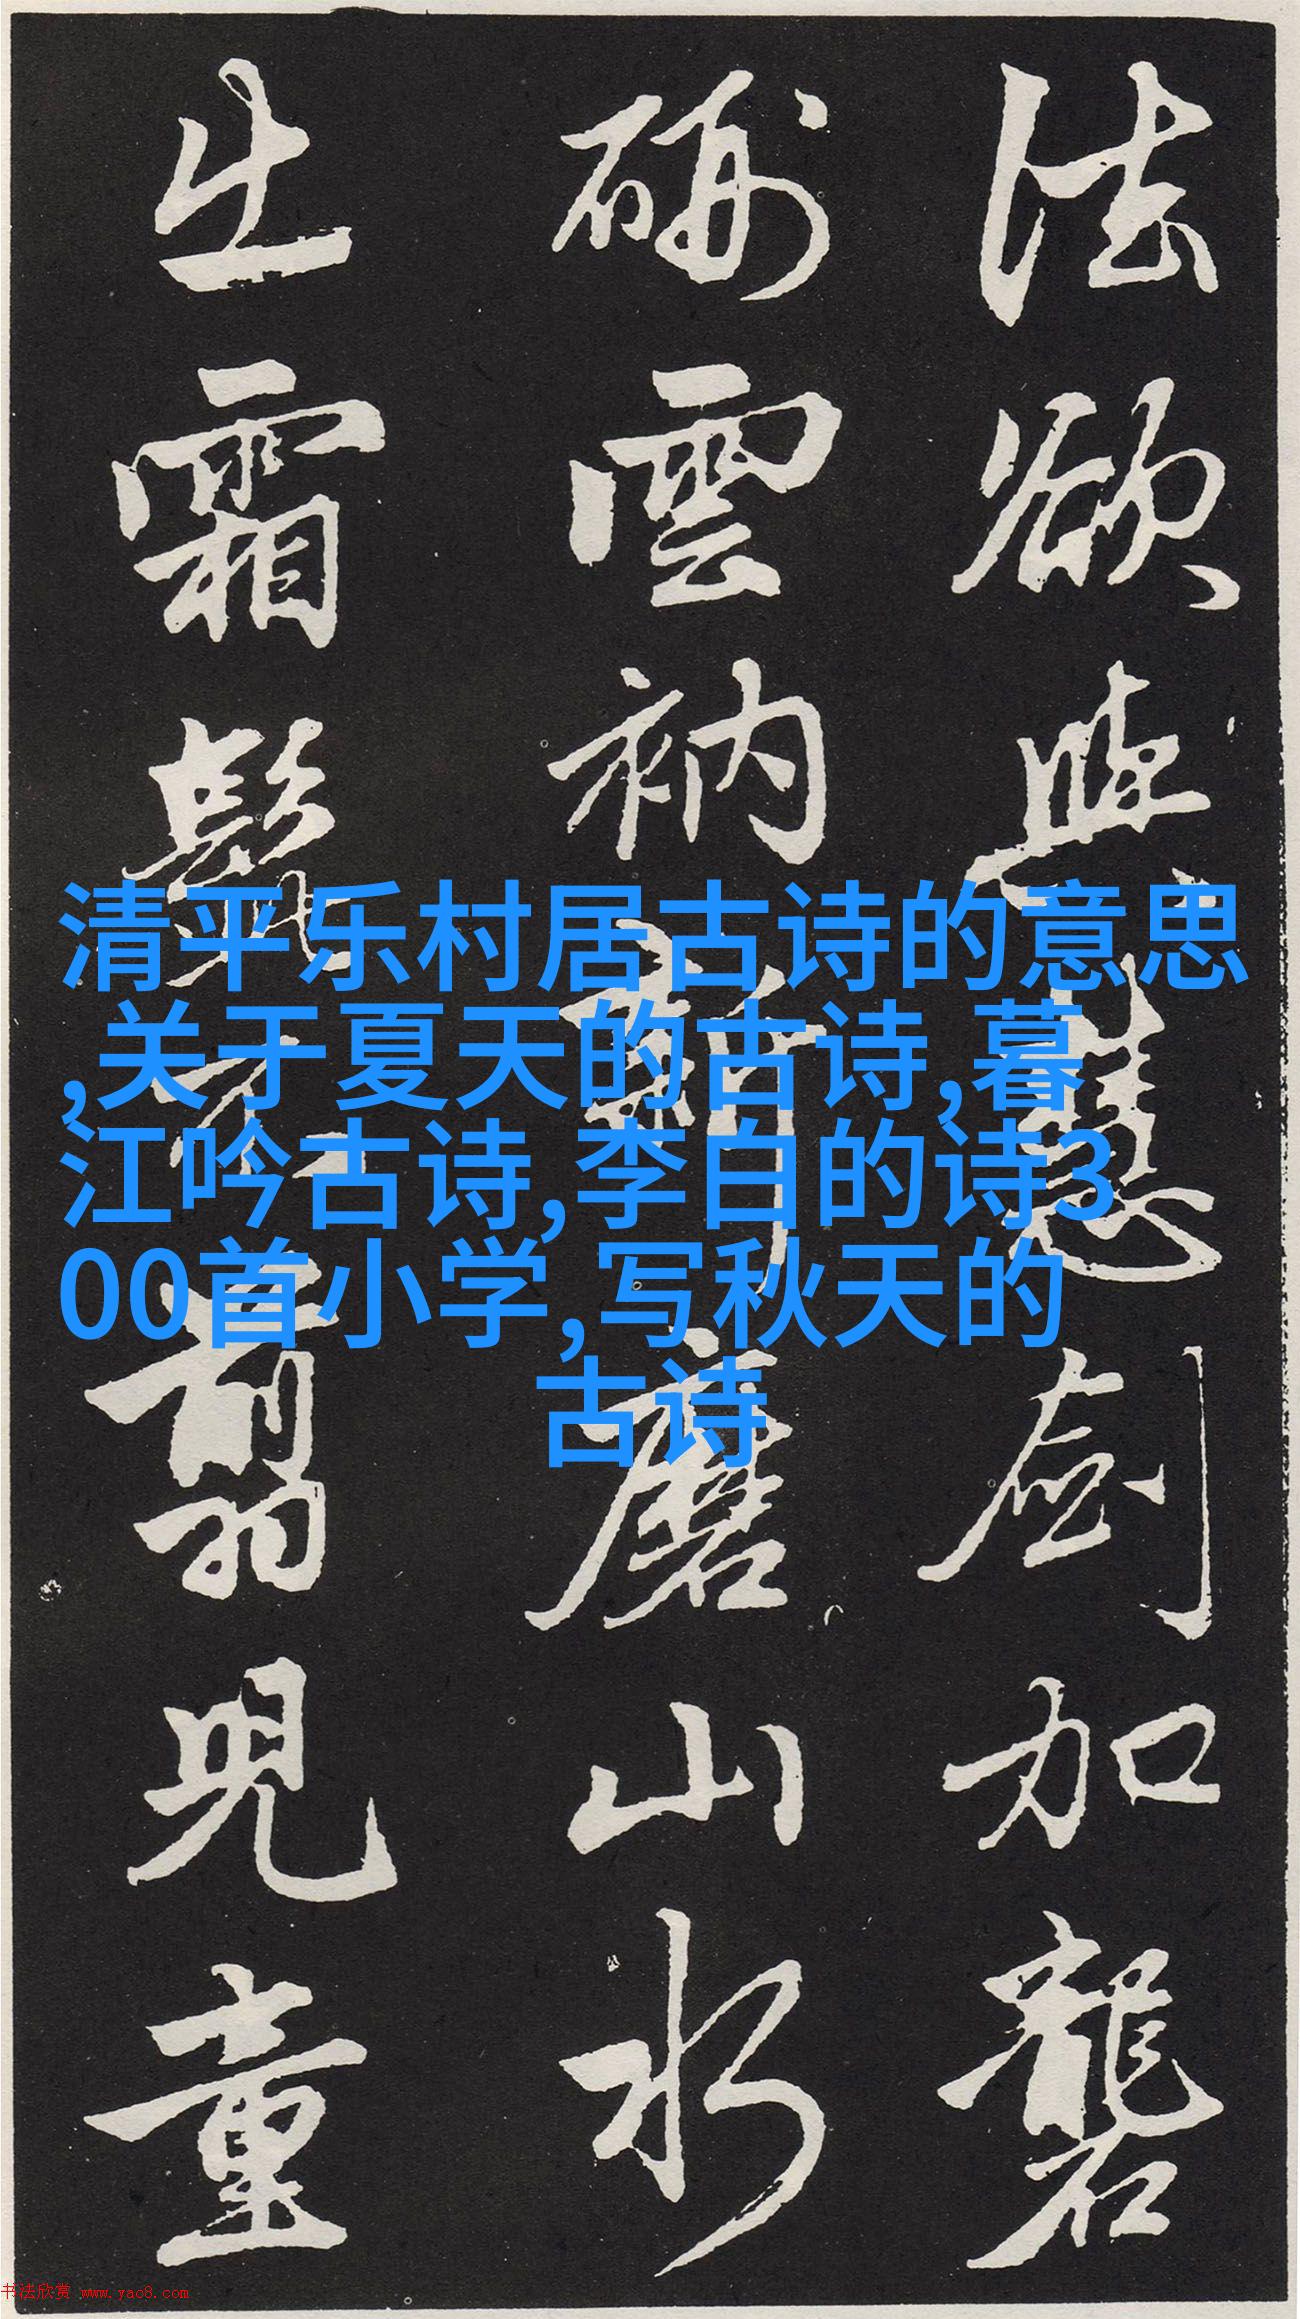 法欲與慧劍加礱
硎雲衲新磨山水
出霜髭不翦兒童
清平乐村居古诗的意思
,关于夏天的古诗,暮
江吟古诗,李白的诗3
00首小学,写秋天的
古诗
书法欣赏 www.yac8.com